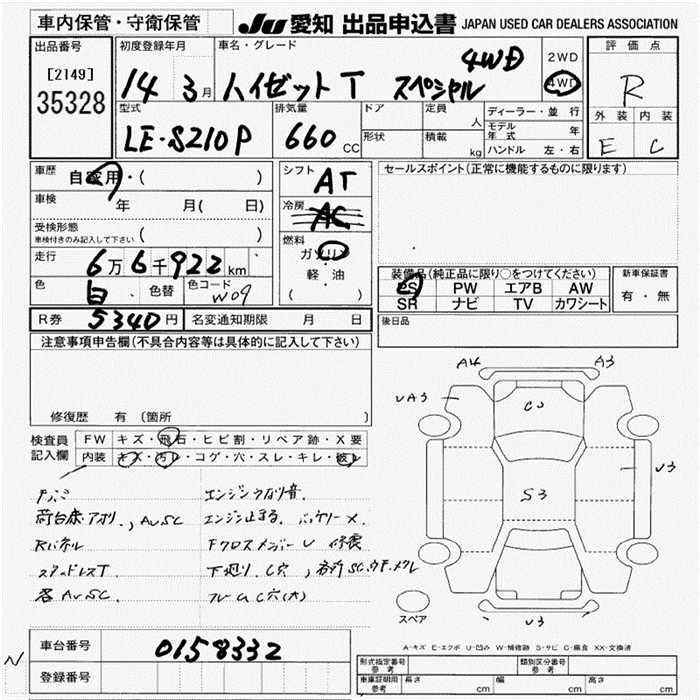 車内保管・守衛保管
JU 愛知 出品申込書 JAPAN USED CAR DEALERS ASSOCIATION
出品番号
[2149]
35328
初度登録年月
14 3月
車名・グレード
ハイゼットT スペシャル 4WD
2WD
4WD
評価点
R
外装 内装
E C
型式
LE-S210P
排気量
660 CC
ドア
形状
定員
人
積載
kg
ディーラー・並行
モデル年式 年
ハンドル 左・右
車歴
自家用・( )
車検
年 月( 日)
受検形態
車検付きのみ記入して下さい ( )
走行
6万6千922km
色
白
色替
色コード
W09
シフト
AT
冷房
AC
燃料
ガソリン
軽・油
( )
セールスポイント(正常に機能するものに限ります)
装備品(純正品に限り○をつけてください)
PS PW エアB AW
SR ナビ TV カワシート
新車保証書
有・無
後日品
R券 5340円
名変通知期限 月 日
注意事項申告欄(不具合内容等は具体的に記入して下さい)
修復歴 有(箇所
検査員記入欄
FW キズ・飛石・ヒビ割・リペア跡・X要
内装 キズ・汚レ・コゲ・穴・スレ・キレ・破レ
エンジンウナリ音.
荷台床アオリ., AuSC エンジン止まる. バッテリーX.
Rパネル FクロスメンバーU 修復
スタッドレスT 下廻り.C穴
各AuSC. フレームC穴(大)
A4 A3
UA3
U3
S3
U3
スペア
A-キズ E-エクボ U-凹み W-補修跡 S-サビ C-腐食 XX-交換済
N
車台番号
0158332
登録番号
型式指定番号 参考
類別区分番号 参考
車庫証明用 参考
長さ cm
幅 cm
高さ cm